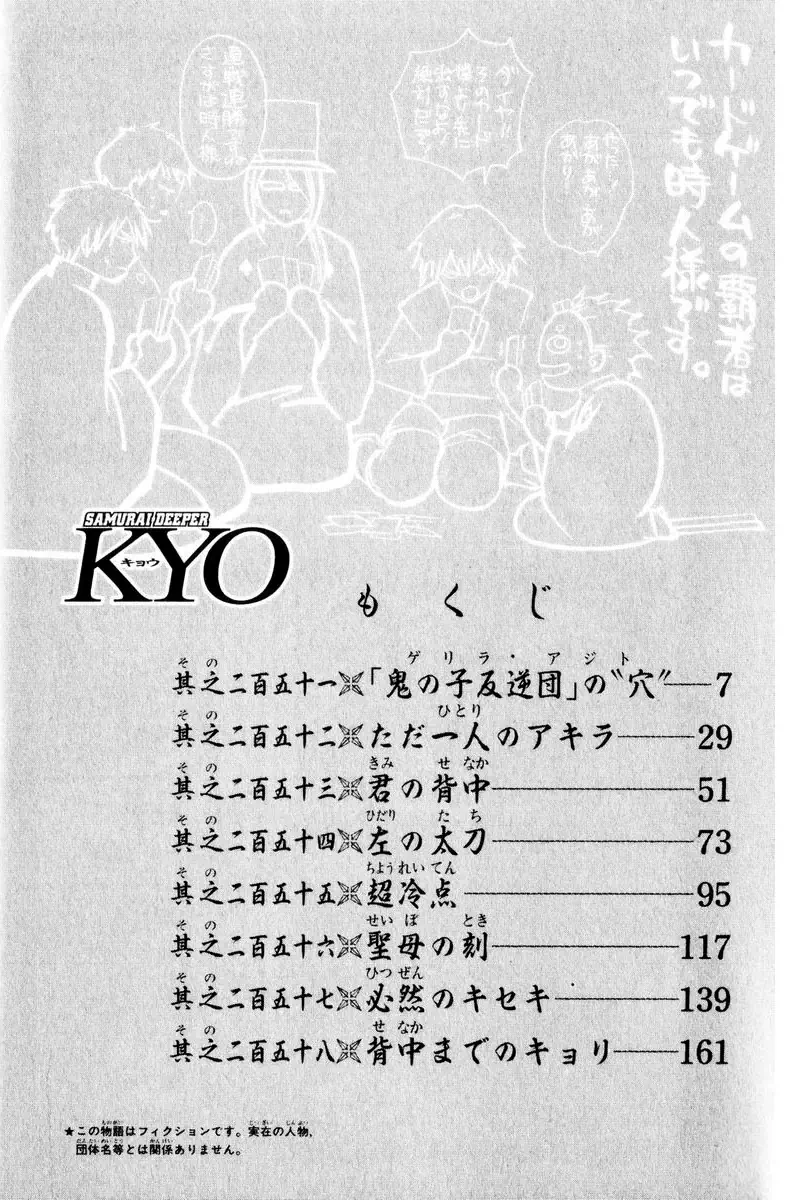 カードゲームの覇者は
いつでも時人様です。
やだ!
あがあがあが
あがり!
ダイヤの
連戦連勝ですね
さすがは時人様
SAMURAI DEEPER
KYO
キョウ
もくじ
其之二百五十一「鬼の子反逆団」の"穴"7
其之二百五十二ただ一人のアキラ29
其之二百五十三君の背中51
其之二百五十四左の太刀73
其之二百五十五超冷点95
其之二百五十六聖母の刻117
其之二百五十七必然のキセキ139
其之二百五十八背中までのキョリ161
★この物語はフィクションです。実在の人物、
団体名等とは関係ありません。